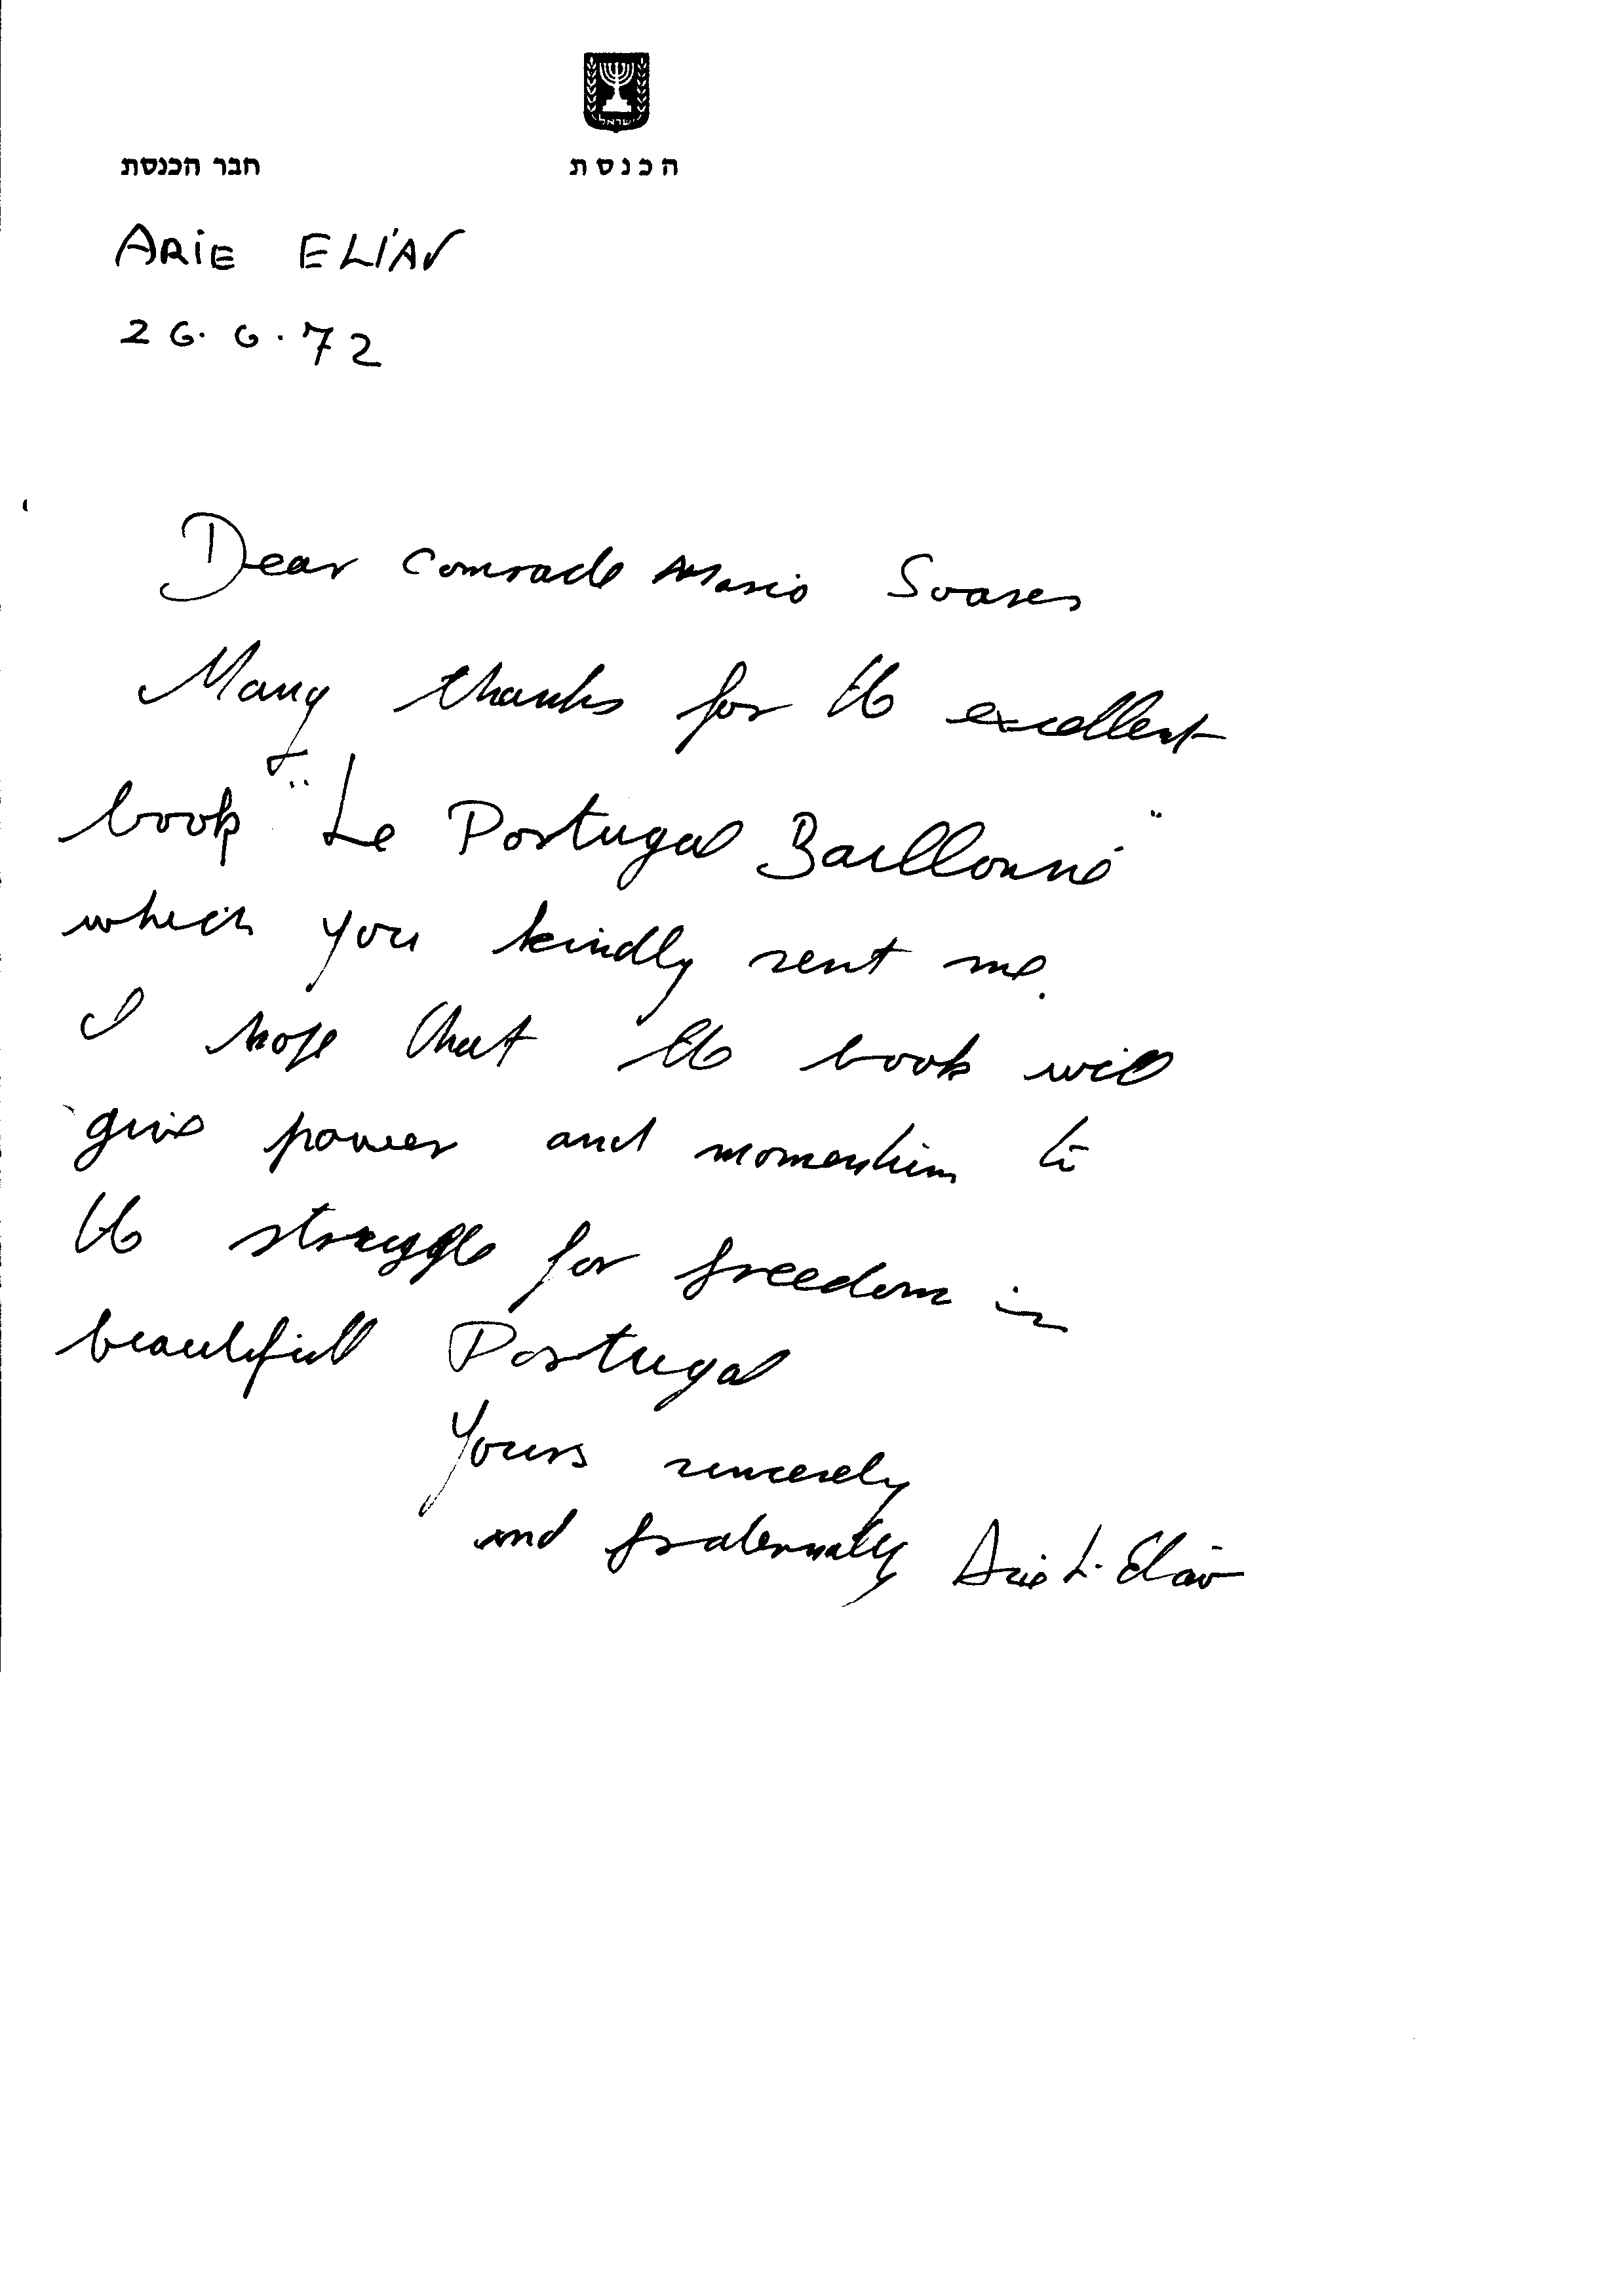 ישראל
הכנסת
חבר הכנסת
ARIE ELIAV
26.6.72
Dear Comrade Mario Soares
Many thanks for the excellent
book "Le Portugal Baillonné"
which you kindly sent me.
I hope that the book will
give power and momentum to
the struggle for freedom in
beautifull Portugal
Yours sincerely
and fraternally Arie L. Eliav